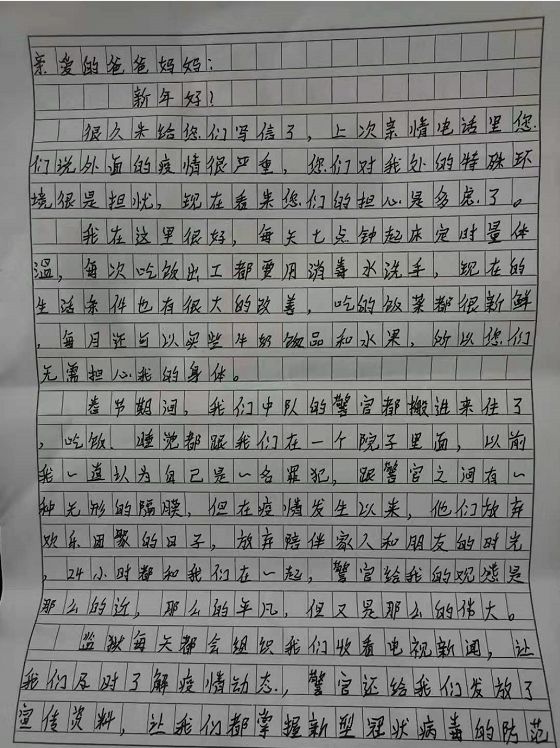 亲爱的爸爸妈妈:
新年好!
很久未给您们写信了,上次亲情电话里您
们说外面的疫情很严重,您们对我处的特殊环
境很是担忧,现在看来您们的担心是多虑了。
我在这里很好,每天七点钟起床定时量体
温,每次吃饭出工都要用消毒水洗手,现在的
生活条件也有很大的改善,吃的饭菜都很新鲜
,每月还可以买些牛奶饮品和水果,所以您们
无需担心我的身体。
春节期间,我们中队的警官都搬进来住了
,吃饭、睡觉都跟我们在一个院子里面,以前
我一直认为自己是一名罪犯,跟警官之间有一
种无形的隔膜,但在疫情发生以来,他们放弃
欢乐团聚的日子,放弃陪伴家人和朋友的时光
,24小时都和我们在一起,警官给我的观感是
那么的近,那么的平凡,但又是那么的伟大。
监狱每天都会组织我们收看电视新闻,让
我们及时了解疫情动态,警官还给我们发放了
宣传资料,让我们都掌握新型冠状病毒的防范